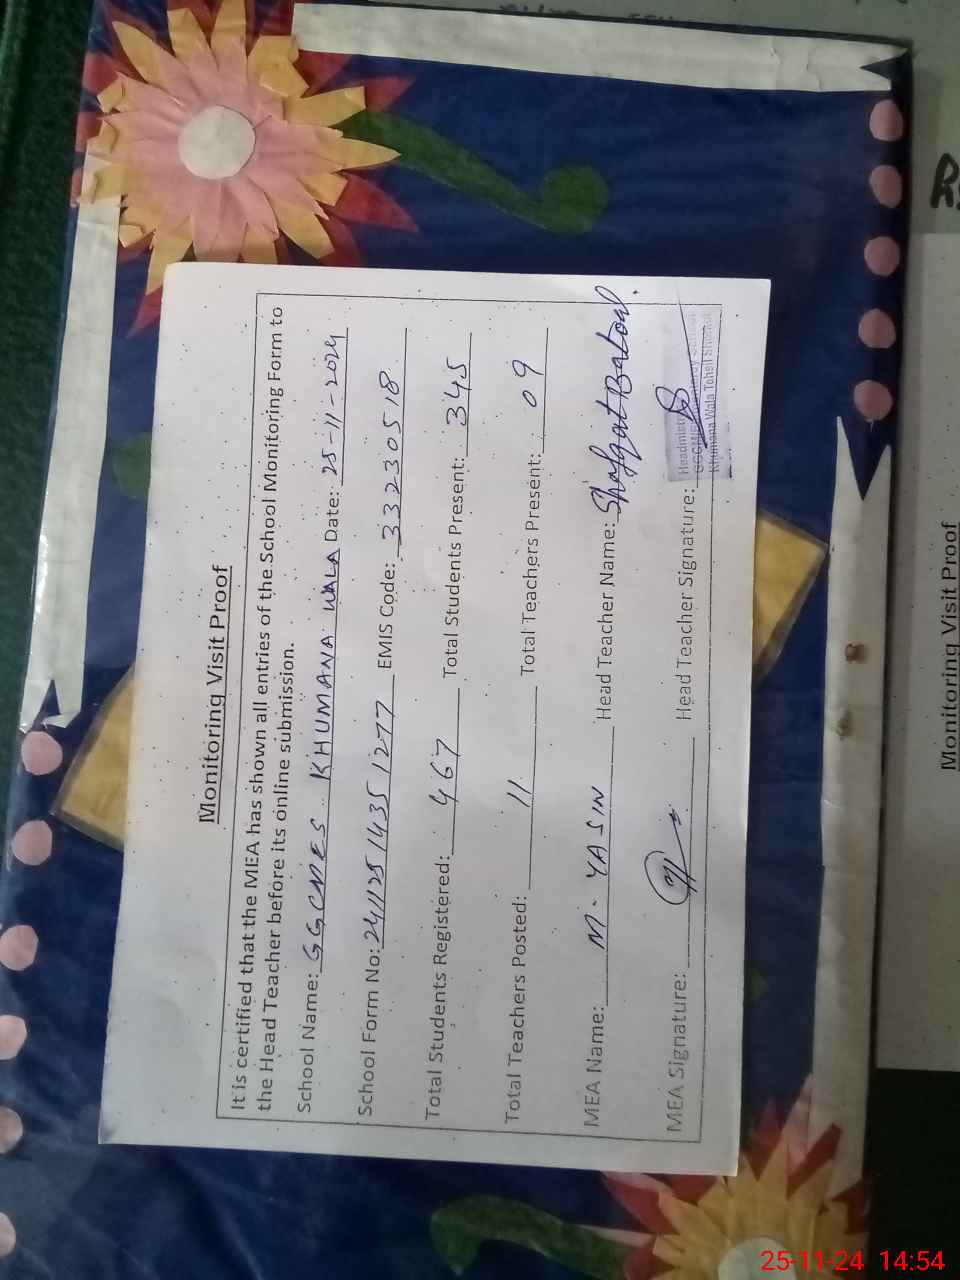 Monitoring Visit Proof
It is certified that the MEA has shown all entries of the School Monitoring Form to
the Head Teacher before its online submission.
School Name: GGCMES KHUMANA WALA Date: 25-11-2024
School Form No: 241125 1435 1277 EMIS Code: 33230518
Total Students Registered: 467 Total Students Present: 345
Total Teachers Posted: 11 Total Teachers Present: 09
MEA Name: M. YASIN Head Teacher Name: Shafqat Batool.
MEA Signature: Head Teacher Signature:
Khumana Wala
Monitoring Visit Proof
25-11-24 14:54